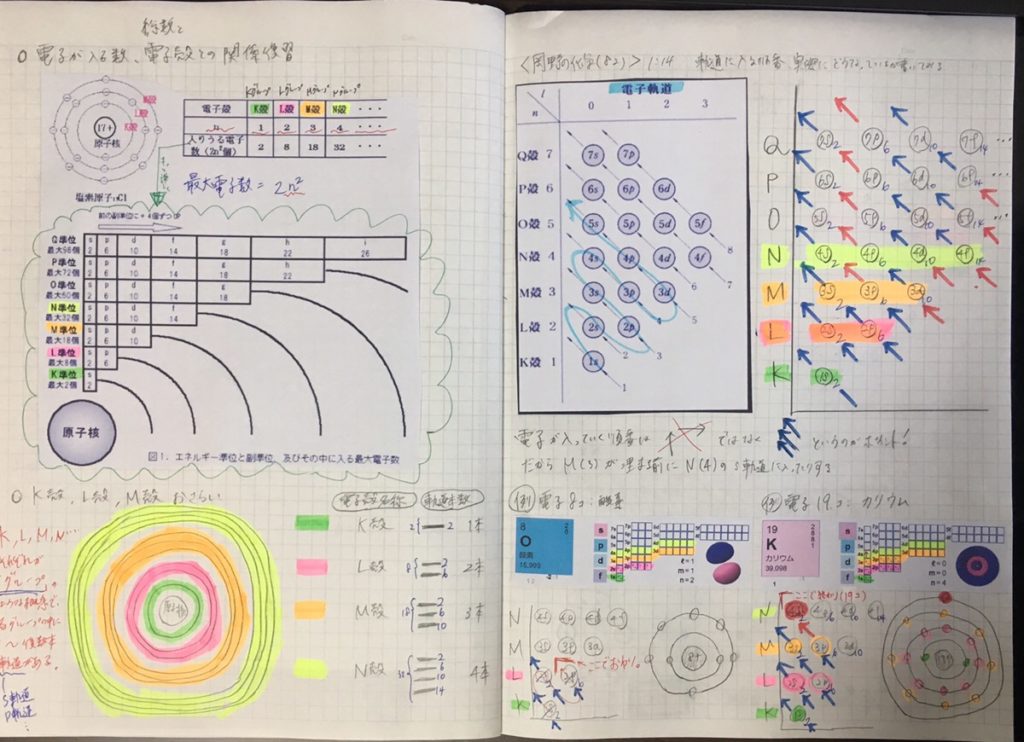 称数と
○ 電子が入る数、電子殻との関係復習
Kグループ Lグループ Mグループ Nグループ
電子殻 K殻 L殻 M殻 N殻 ・・・
n 1 2 3 4 ・・・
入りうる電子数(2n²個) 2 8 18 32 ・・・
M殻
L殻
K殻
17+
原子核
塩素原子17Cl
最大電子数 = 2n²
前の副準位に+4個ずつ
Q準位 s p d f g h i
最大98個 2 6 10 14 18 22 26
P準位 s p d f g h
最大72個 2 6 10 14 18 22
O準位 s p d f g
最大50個 2 6 10 14 18
N準位 s p d f
最大32個 2 6 10 14
M準位 s p d
最大18個 2 6 10
L準位 s p
最大8個 2 6
K準位 s
最大2個 2
原子核
図1. エネルギー準位と副準位、及びその中に入る最大電子数
○ K殻、L殻、M殻 おさらい
電子殻名称 軌道本数
K殻 2 2 1本
L殻 8 2 6 2本
M殻 18 2 6 10 3本
N殻 32 2 6 10 14 4本
K, L, M, N…
それぞれが
グループ。
各グループの中に
〜複数本
軌道がある。
s軌道
p軌道
<岡野の化学(82)> 1:14 軌道に入る順番、実際にどうなっているか書いてみる
電子軌道
l
n 0 1 2 3
Q殻 7 7s 7p
P殻 6 6s 6p 6d
O殻 5 5s 5p 5d 5f
N殻 4 4s 4p 4d 4f
M殻 3 3s 3p 3d
L殻 2 2s 2p
K殻 1 1s
1 2 3 5 6 7 8
Q 7s2 7p6 7d10 7f14 …
P 6s2 6p6 6d10 6f14 …
O 5s2 5p6 5d10 5f14 …
N 4s2 4p6 4d10 4f14
M 3s2 3p6 3d10
L 2s2 2p6
K 1s2
電子が入っていく順番は ではなく というのがポイント!
だから M(3)が埋まる前に N(4)の s軌道に入ったりする
例 電子8コ: 酸素
例 電子19コ: カリウム
8 2 6
O
酸素
15,999
s
p
d
f
ℓ=1
m=1
n=2
19 2 8 8 1
K
カリウム
39,098
s
p
d
f
ℓ=0
m=0
n=4
N 4s 4p 4d 4f
M 3s 3p 3d
L 2s2 2p6
K 1s2
ここでおわり。
8+
ここで終わり(19コ)
N 4s 4p 4d 4f
M 3s2 3p6 3d10
L 2s2 2p6
K 2
19+